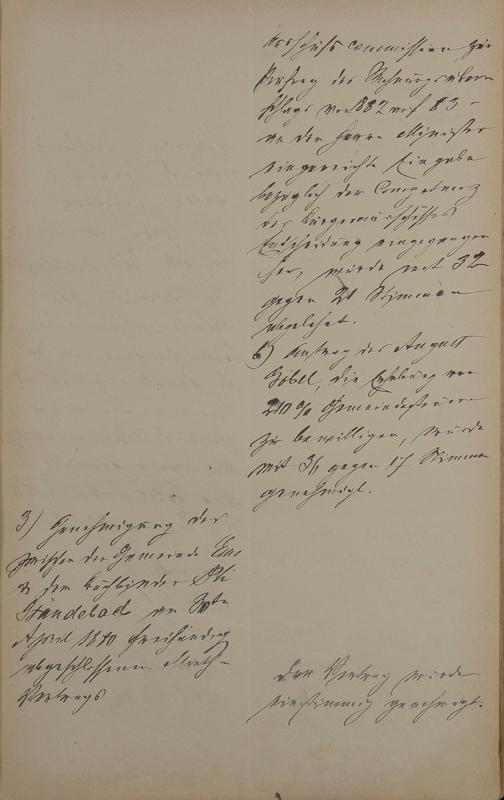 Ausschußcommission zur
Prüfung des Rechnungsüber-
schlags von 1882 auf 83 -
an den Herrn Minister
eingereichte Eingabe
bezüglich der Competenz
des Bürgerausschusses
Entscheidung eingegangen
sei, wurde mit 32
gegen 21 Stimmen
abgelehnt.
6) Antrag des August
Göbel, die Erhebung von
210 % Gemeindesteuern
zu bewilligen, wurde
mit 36 gegen 17 Stimmen
genehmigt.
3) Genehmigung des
zwischen der Gemeinde Ems
& dem Buchbinder
Ständebach am
April 1880 freihändig
abgeschlossenen Mieth-
Vertrags
Der Vertrag wurde
einstimmig genehmigt.